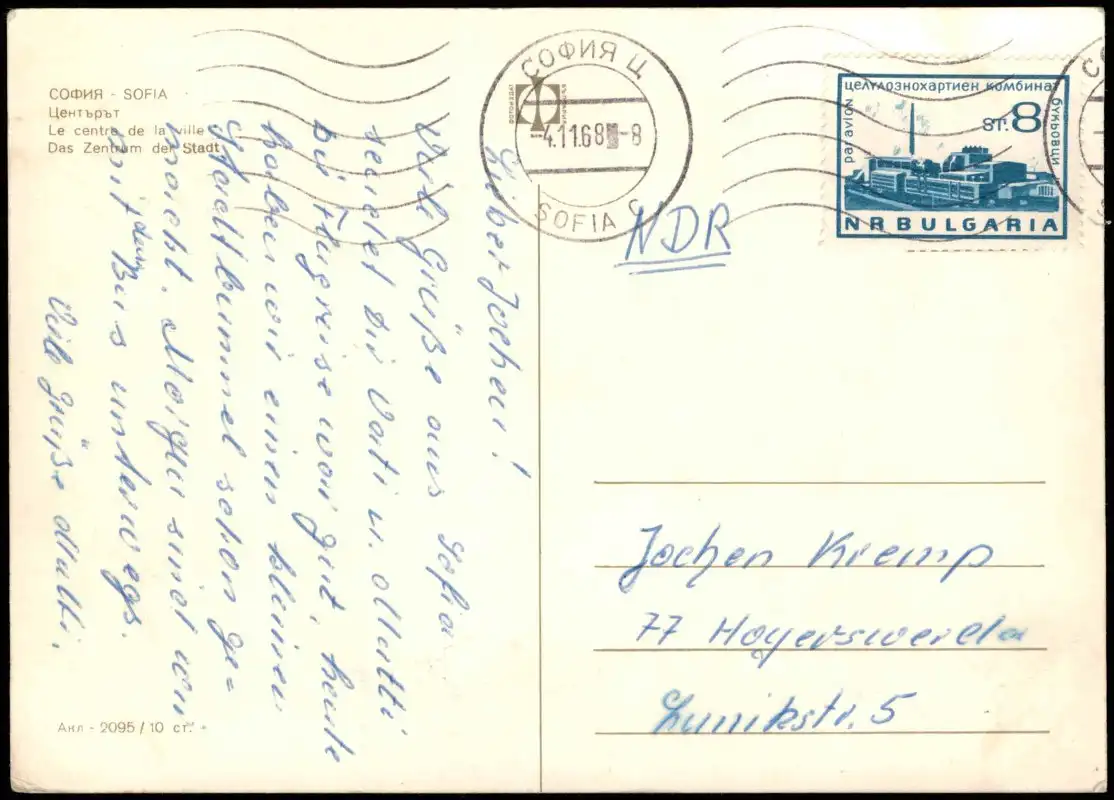 СОФИЯ - SOFIA
Центърът
Le centre de la ville
Das Zentrum der Stadt
Lieber Jochen!
Viele Grüße aus Sofia
sendet Dir Vati u. Mutti
die Flugreise war gut, heute
haben wir einen kleinen
Stadtbummel schon ge=
macht. Morgen sind wir
mit dem Bus unterwegs.
Viele Grüße Mutti.
Акл - 2095 / 10 ст.
СОФИЯ Ц
-4.11.68 -8
SOFIA C
NDR
целулознохартиен комбинат
par avion
букьовци
ST. 8
NRBULGARIA
Jochen Kremp
77 Hoyerswerda
Lunikstr. 5